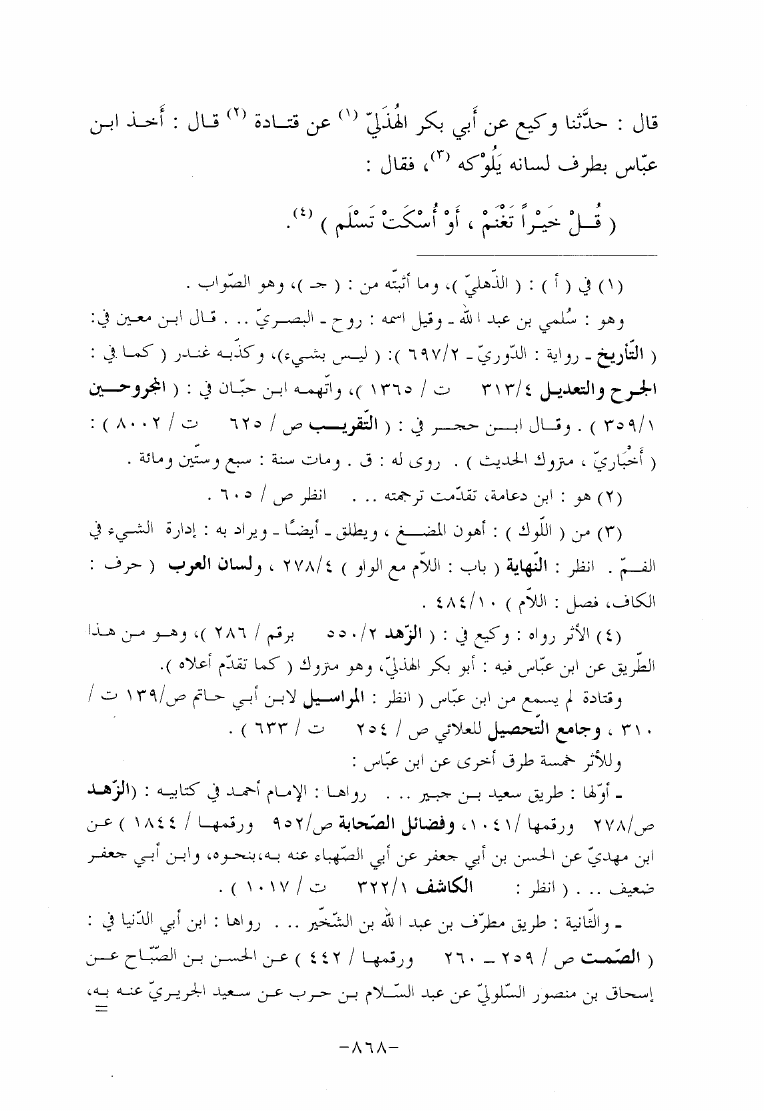 قال : حدَّثنا وكيع عن أبي بكر الهُذَليّ (١) عن قتـادة (٢) قال : أخـذ ابـن
عبّاس بطرف لسانه يَلُوْكه (٣)، فقال :
( قُــلْ خَيْـراً تَغْنَـمْ ، أَوْ أُسْكَتْ تَسْلَم ) (٤).
(١) في ( أ ) : ( الذّهليّ )، وما أثبتّه من : ( جـ )، وهو الصّواب .
وهو : سُلمي بن عبد الله - وقيل اسمه : روح - البصـريّ ... قـال ابـن معـين في:
( التّأريخ - رواية : الدّوريّ - ٦٩٧/٢ ): ( ليـس بشـيء)، وكذّبـه غنـدر ( كمـا في :
الجرح والتعديل ٣١٣/٤ ت / ١٣٦٥ )، واتّهمـه ابـن حبّـان في : ( المجروحـين
٣٥٩/١ ) . وقـال ابـن حجـر في : ( التّقريـب ص / ٦٢٥ ت / ٨٠٠٢ ) :
( أخْبَاريّ ، متروك الحديث ) . روى له : ق . ومات سنة : سبع وستّين ومائة .
(٢) هو : ابن دعامة، تقدّمت ترجمته ... انظر ص / ٦٠٥ .
(٣) من ( اللّوك ) : أهون المضـغ ، ويطلق - أيضـًا - ويراد به : إدارة الشّيء في
الفـمّ . انظر : النّهاية ( باب : اللاّم مع الواو ) ٢٧٨/٤ ، ولسان العرب ( حرف :
الكاف، فصل : اللاّم ) ٤٨٤/١٠ .
(٤) الأثر رواه : وكيع في : ( الزّهد ٥٥٠/٢ برقم / ٢٨٦ )، وهـو مـن هـذا
الطّريق عن ابن عبّاس فيه : أبو بكر الهذليّ، وهو متروك ( كما تقدّم أعلاه ).
وقتادة لم يسمع من ابن عبّاس ( انظر : المراسـيل لابـن أبـي حـاتم ص/١٣٩ ت /
٣١٠ ، وجامع التّحصيل للعلائي ص / ٢٥٤ ت / ٦٣٣ ) .
وللأثر خمسة طرق أخرى عن ابن عبّاس :
- أوّلها : طريق سعيد بـن جبـير ... رواهـا : الإمـام أحمـد في كتابيـه : (الزّهـد
ص/٢٧٨ ورقمها /١٠٤١، وفضائل الصّحابة ص/٩٥٢ ورقمهـا / ١٨٤٤ ) عـن
ابن مهديّ عن الحسن بن أبي جعفر عن أبي الصّهباء عنه بـه،بنحـوه، وابـن أبـي جعفـر
ضعيف ... ( انظر : الكاشف ٣٢٢/١ ت / ١٠١٧ ) .
- والثّانية : طريق مطرّف بن عبد الله بن الشّخّير ... رواها : ابن أبي الدّنيا في :
( الصّمت ص / ٢٥٩ - ٢٦٠ ورقمهـا / ٤٤٢ ) عـن الحسـن بـن الصّبّاح عـن
إسحاق بن منصور السّلوليّ عن عبد السّـلام بـن حـرب عـن سـعيد الجريـريّ عنـه بـه،
=
-٨٦٨-